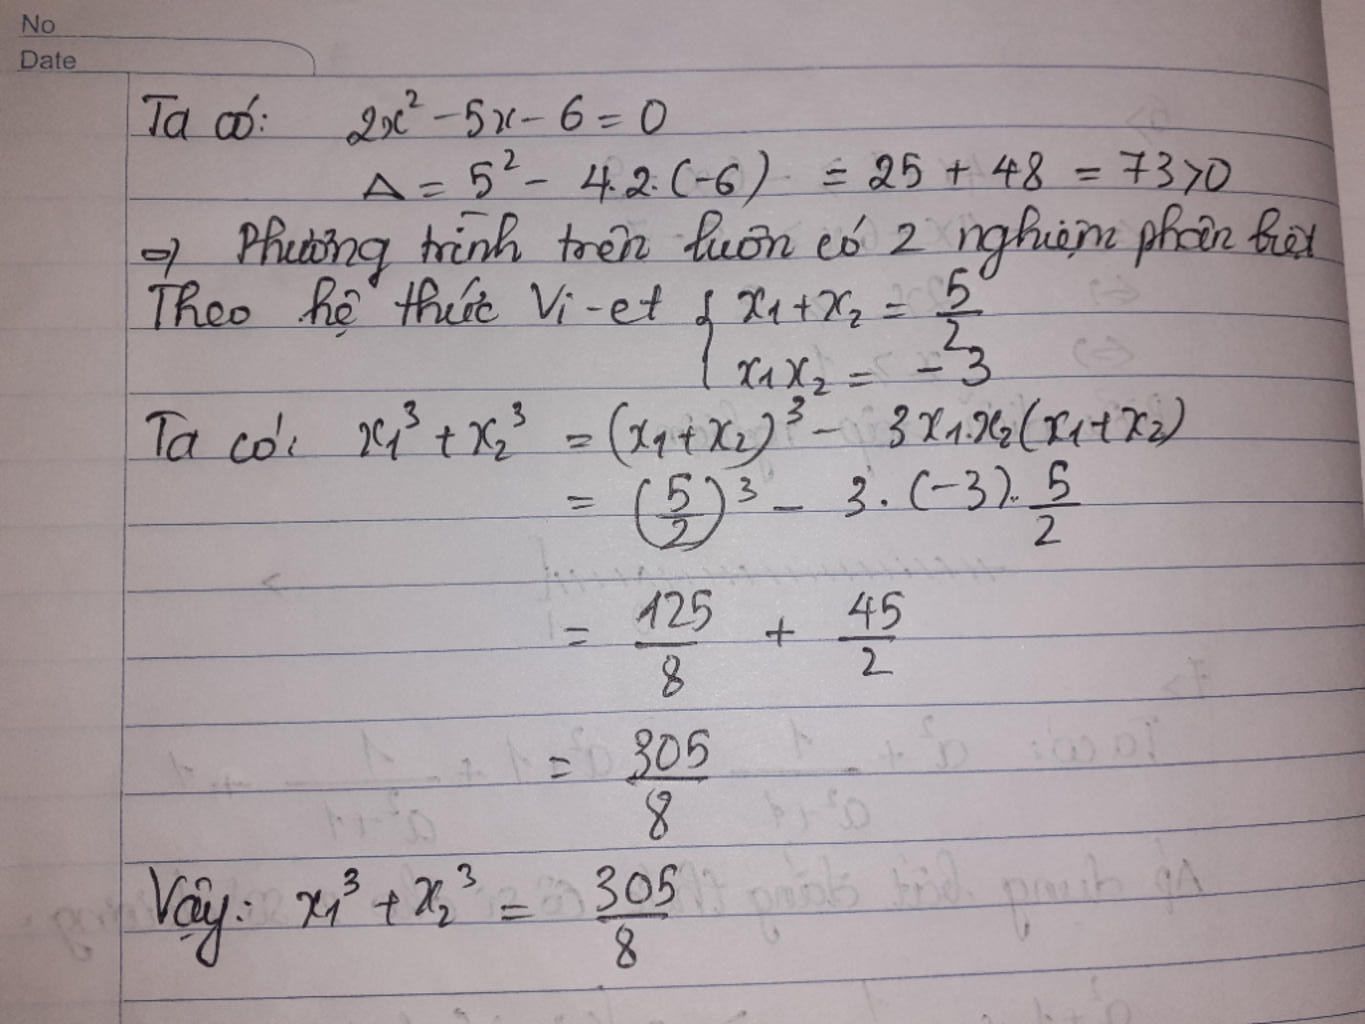 No
Date
Ta có: 2x² - 5x - 6 = 0
Δ = 5² - 4.2.(-6) = 25 + 48 = 73 > 0
⇒ Phương trình trên luôn có 2 nghiệm phân biệt
Theo hệ thức Vi-et { x₁ + x₂ = 5/2
x₁x₂ = -3
Ta có: x₁³ + x₂³ = (x₁ + x₂)³ - 3x₁.x₂(x₁ + x₂)
= (5/2)³ - 3.(-3).5/2
= 125/8 + 45/2
= 305/8
Vậy: x₁³ + x₂³ = 305/8